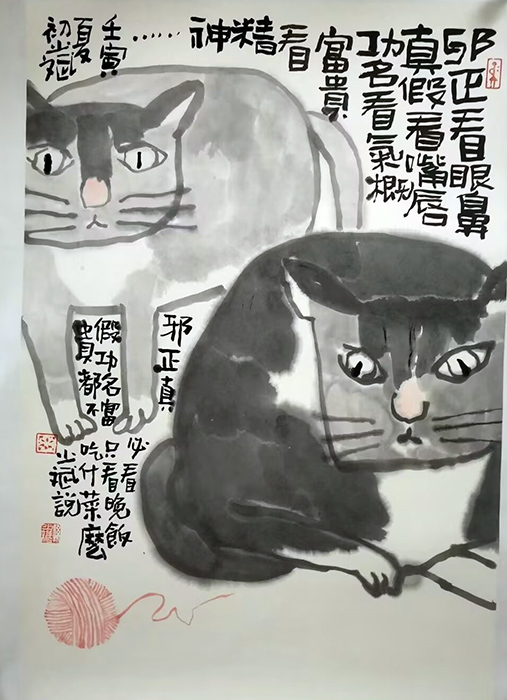 邪正看眼鼻
真假看嘴唇
功名看氣概
富貴
看精神……
壬寅
夏
初止斌
邪正真
假功名富
貴都不
必看
只看晚飯
吃什菜麼
止斌說